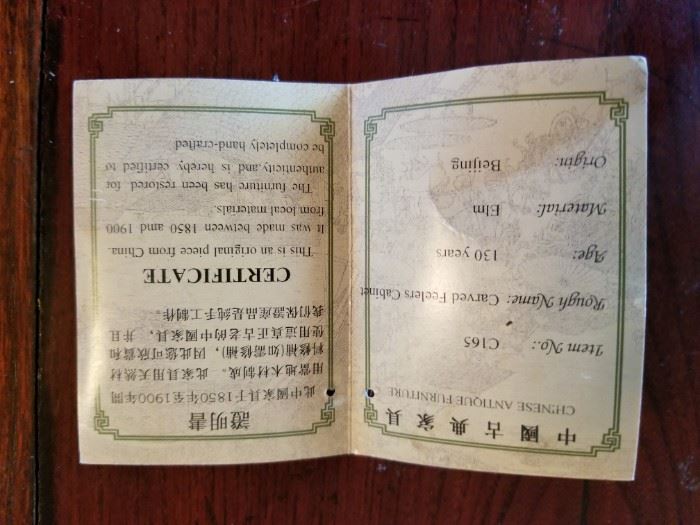 中國古典家具
CHINESE ANTIQUE FURNITURE
Item No.: C165
Rough Name: Carved Feelers Cabinet
Age: 130 years
Material: Elm
Origin: Beijing
證明書
此中國家具于1850年至1900年間
用當地木材制成。此家具用天然材
料修補(如需修補)，因此您可欣賞和
使用這真正古老的中國家具，并且
我們保證産品是純手工制作。
CERTIFICATE
This is an original piece from China.
It was made between 1850 amd 1900
from local materials.
The furniture has been restored for
authenticity.and is hereby certified to
be completely hand-crafted